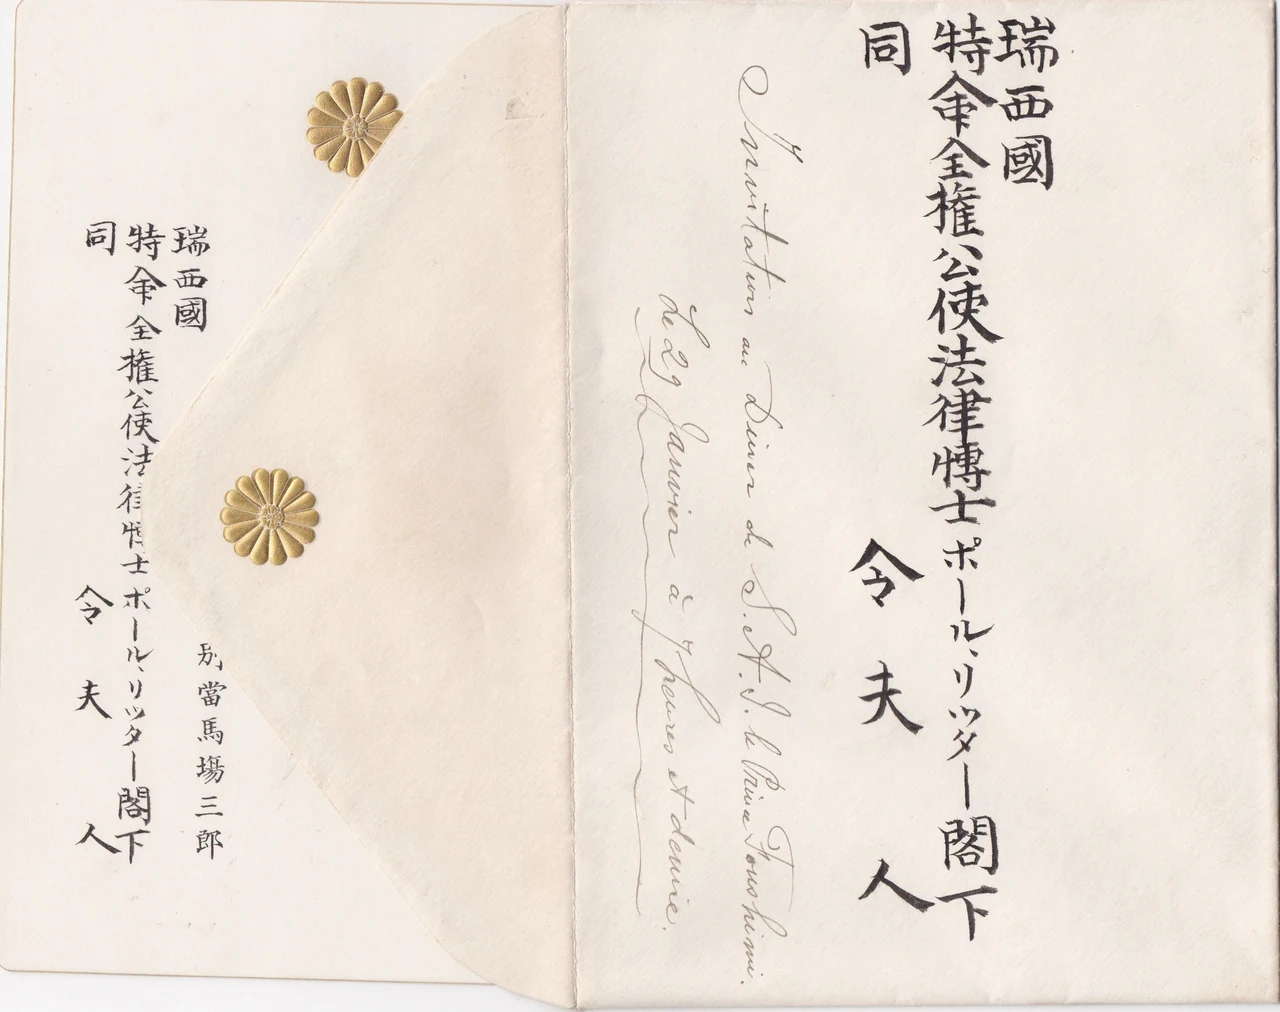 瑞西國
特命全権公使法律博士ポール、リッター閣下
同 令夫人
Invitation au Diner de S. A. I. le Prince Foushimi.
Le 29 Janvier à 7 heures et demie.
別當馬場三郎
瑞西國
特命全権公使法律博士ポール、リッター閣下
同 令夫人